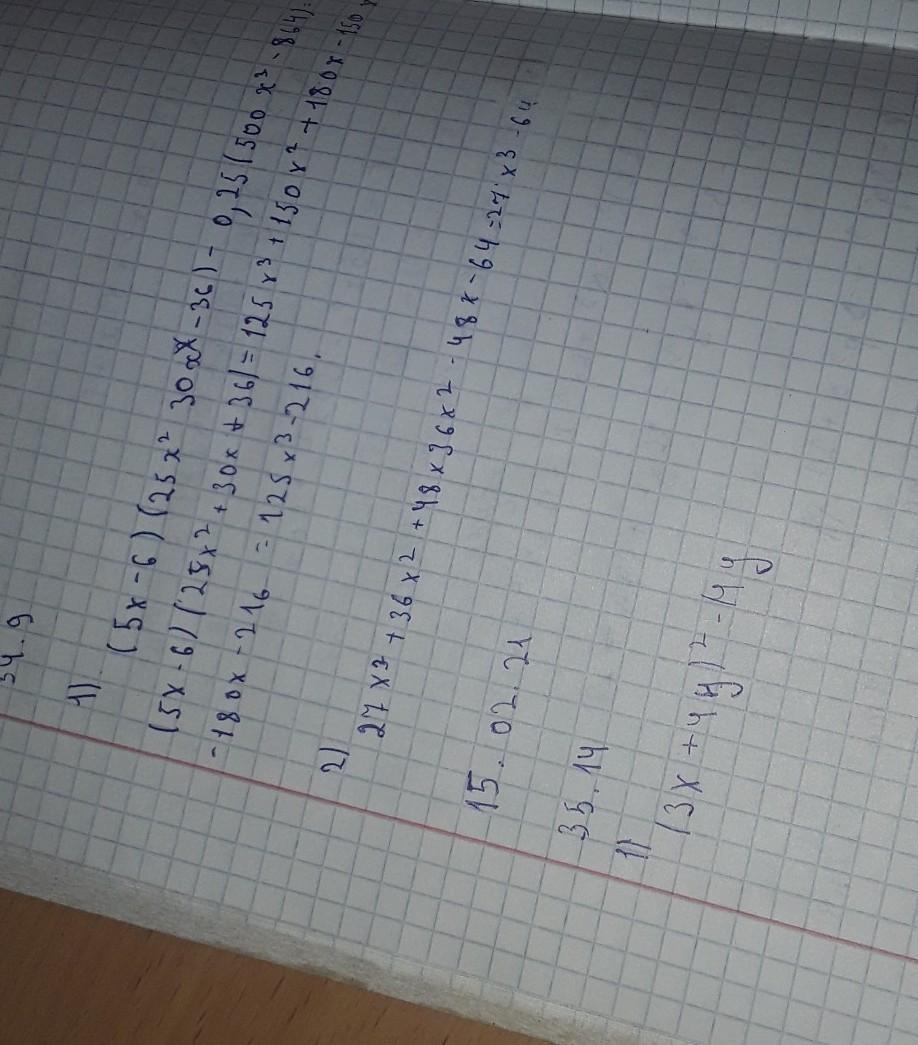 34.9
1).
(5x-6)(25x² 30xx-36)- 0,25(500x³-864)=
(5x-6)(25x²+30x+36)=125x³+150x²+180x-150x
-180x-216 =125x³-216.
2)
27x³+36x²+48x36x2-48x-64=27x3-64
15.02.21
35.14
1)
(3x+4y)²-(4y